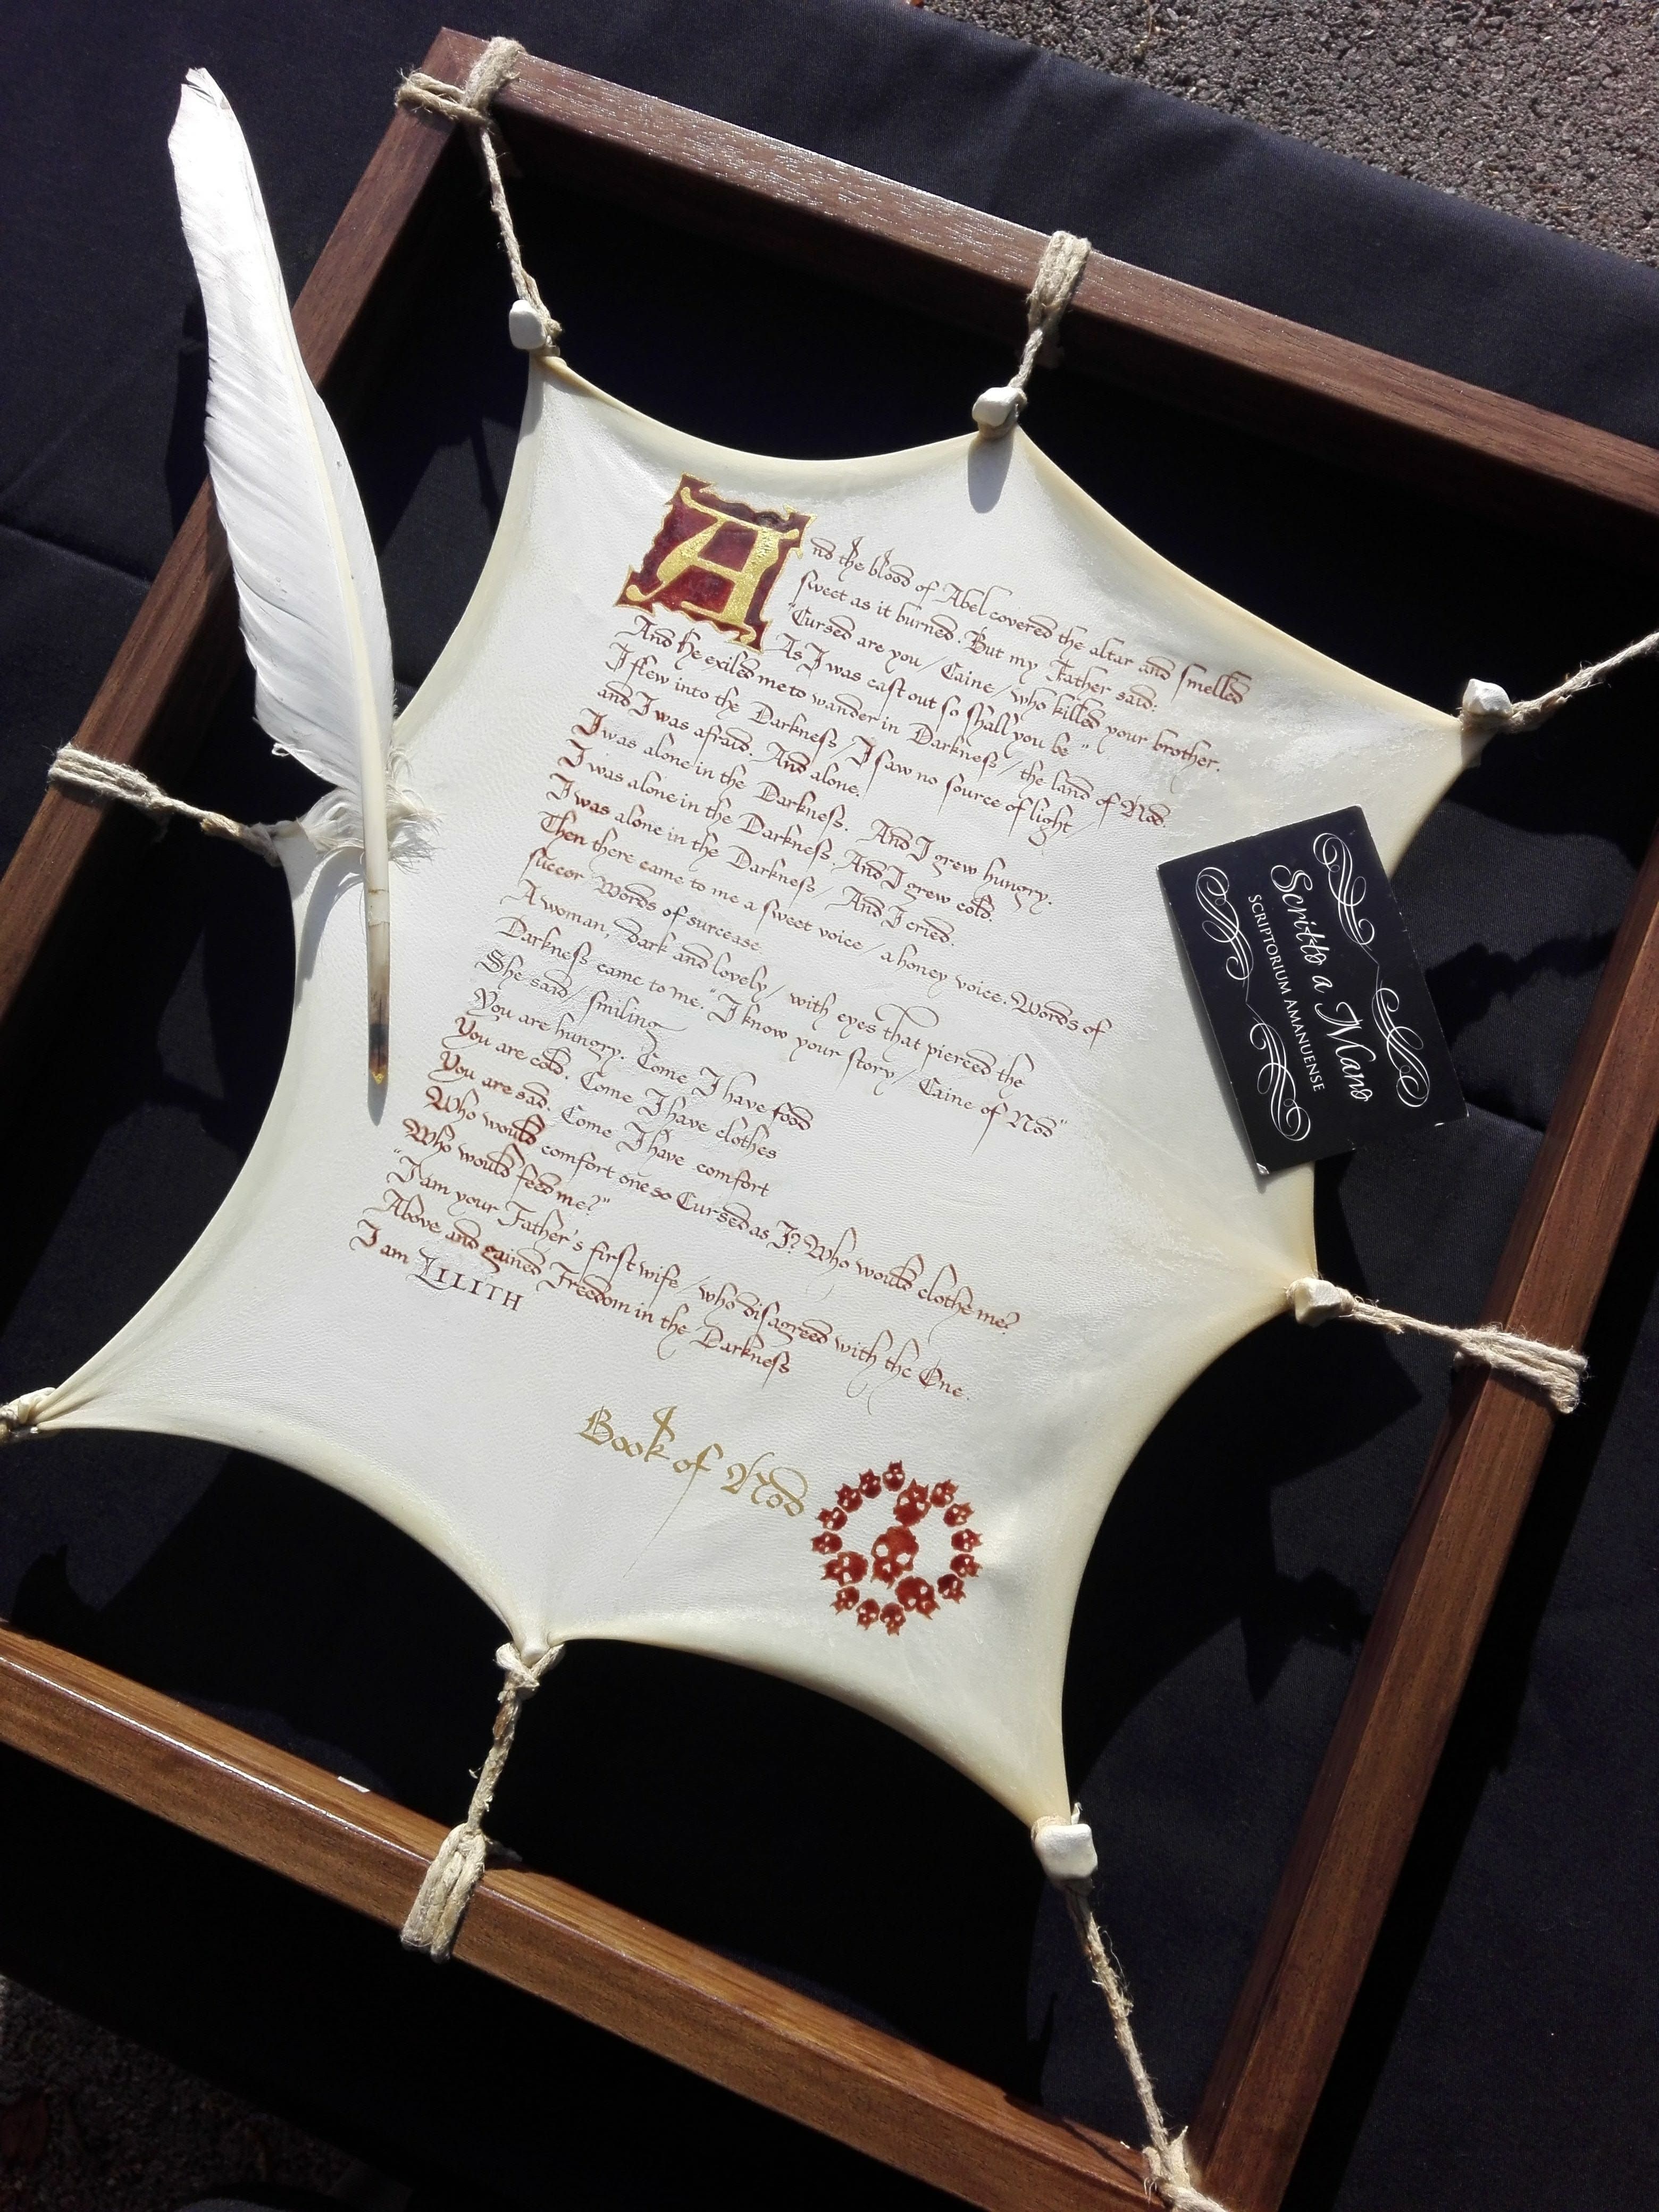 And the blood of Abel covered the altar and smelled
sweet as it burned. But my Father said:
"Cursed are you / Caine / who killed your brother.
As I was cast out so shall you be"
And he exiled me to wander in Darkness / the land of Nod.
I flew into the Darkness / I saw no source of light /
and I was afraid. And alone.
I was alone in the Darkness. And I grew hungry.
I was alone in the Darkness. And I grew cold.
I was alone in the Darkness / And I cried.
Then there came to me a sweet voice / a honey voice. Words of
succor Words of surcease
A woman, dark and lovely / with eyes that pierced the
Darkness came to me. "I know your story / Caine of Nod"
She said / smiling
You are hungry. Come I have food
You are cold. Come I have clothes
You are sad. Come I have comfort
Who would comfort one so Cursed as I? Who would clothe me?
Who would feed me?"
"I am your Father's first wife / who disagreed with the One
Above and gained Freedom in the Darkness
I am LILITH
Book of Nod
Scritto a Mano
SCRIPTORIUM AMANUENSE